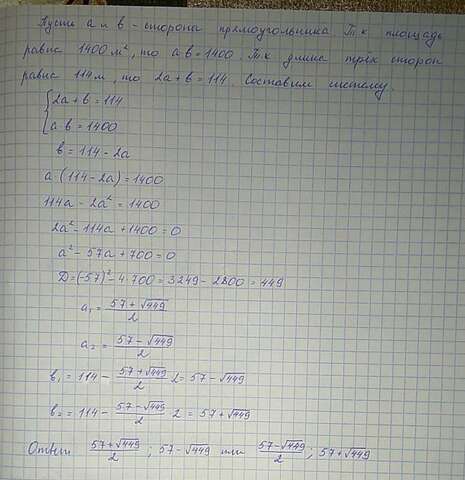 Пусть a и b - сторона прямоугольника. Т.к площадь
равна 1400 м², то a·b = 1400. Т.к длина трёх сторон
равна 114 м, то 2a + b = 114. Составим систему.
{2a + b = 114
{a·b = 1400
b = 114 - 2a
a (114 - 2a) = 1400
114a - 2a² = 1400
2a² - 114a + 1400 = 0
a² - 57a + 700 = 0
D = (-57)² - 4·700 = 3249 - 2800 = 449
a₁ = (57 + √449)/2
a₂ = (57 - √449)/2
b₁ = 114 - (57 + √449)/2 · 2 = 57 - √449
b₂ = 114 - (57 - √449)/2 · 2 = 57 + √449
Ответ (57 + √449)/2 ; 57 - √449 или (57 - √449)/2 ; 57 + √449